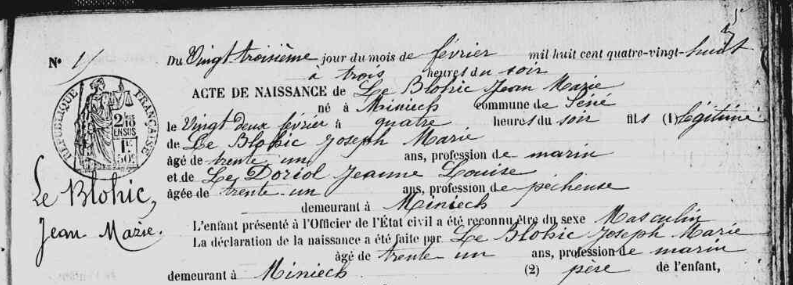 Nº
Du Vingt troisième jour du mois de février mil huit cent quatre-vingt-huit
à trois heures du soir
ACTE DE NAISSANCE de Le Blohic Jean Marie
né à Miniech commune de Séné
le Vingt deux février à quatre heures du soir fils (1) légitime
de Le Blohic Joseph Marie
âgé de trente un ans, profession de marin
et de Le Doriol Jeanne Louise
âgée de trente un ans, profession de pêcheuse
demeurant à Miniech
L'enfant présenté à l'Officier de l'État civil a été reconnu être du sexe Masculin
La déclaration de la naissance a été faite par Le Blohic Joseph Marie
âgé de trente un ans, profession de marin
demeurant à Miniech (2) père de l'enfant,
RÉPUBLIQUE FRANÇAISE
Le Blohic,
Jean Marie.